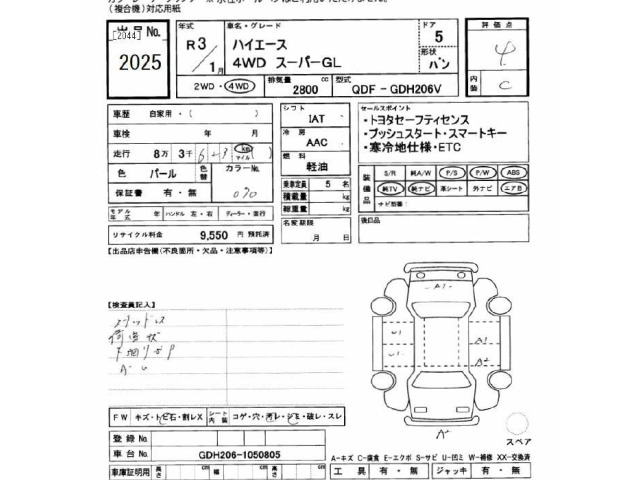 (複合機)対応用紙
出品No.
[2044]
2025
年式
R3/1月
車名・グレード
ハイエース
4WD スーパーGL
ドア
5
形状
バン
評価点
4
内装
C
2WD・4WD
排気量
2800 cc
型式
QDF - GDH206V
車歴 自家用・( )
車検 年 月
走行 8万 3千 km マイル ( )
色 パール
色替
カラーNo.
070
保証書 有・無
モデル年式 年 ハンドル 左・右 ディーラー・並行
リサイクル料金 9,550 円 預託済
シフト
IAT
冷房
AAC
燃料
軽油
乗車定員 5 名
積載量 kg
総重量 kg
名変期限
月 日
セールスポイント
・トヨタセーフティセンス
・プッシュスタート・スマートキー
・寒冷地仕様・ETC
装備品
S/R 純A/W P/S P/W ABS
純TV 純ナビ 革シート 外ナビ エアB
ナビ型番:
後日品
【出品店申告欄(不良箇所・欠品・注意事項等)】
【検査員記入】
荷台状
A1
U1
A1
U1
A2
A2
FW キズ・トビ石・割レX
シート内装 コゲ・穴・汚レ・シミ・破レ・スレ
スペア
登録No.
車台No. GDH206-1050805
A-キズ C-腐食 E-エクボ S-サビ U-凹ミ W-補修 XX-交換済
車庫証明用 長さ cm 幅 cm 高さ cm
工具 有・無 ジャッキ 有・無